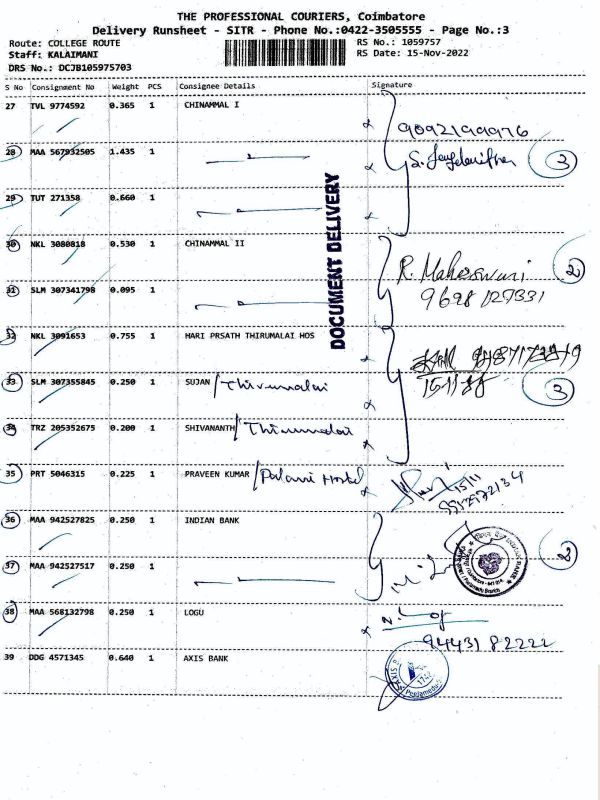 THE PROFESSIONAL COURIERS, Coimbatore
Delivery Runsheet - SITR - Phone No.:0422-3505555 - Page No.:3
Route: COLLEGE ROUTE RS No.: 1059757
Staff: KALAIMANI RS Date: 15-Nov-2022
DRS No.: DCJB105975703
S No Consignment No Weight PCS Consignee Details Signature
27 TVL 9774592 0.365 1 CHINAMMAL I
9092199976
28 MAA 567932505 1.435 1
3
29 TUT 271358 0.660 1
DOCUMENT DELIVERY
30 NKL 3080818 0.530 1 CHINAMMAL II
R. Maheswari 2
31 SLM 307341798 0.095 1
9698 127331
32 NKL 3091653 0.755 1 HARI PRSATH THIRUMALAI HOS
33 SLM 307355845 0.250 1 SUJAN / Thirumalai
3
34 TRZ 205352675 0.200 1 SHIVANANTH / Thirumalai
35 PRT 5046315 0.225 1 PRAVEEN KUMAR / Palani Hostel
15/11
36 MAA 942527825 0.250 1 INDIAN BANK
2
37 MAA 942527517 0.250 1
38 MAA 568132798 0.250 1 LOGU
94431 82222
39 DDG 4571345 0.640 1 AXIS BANK